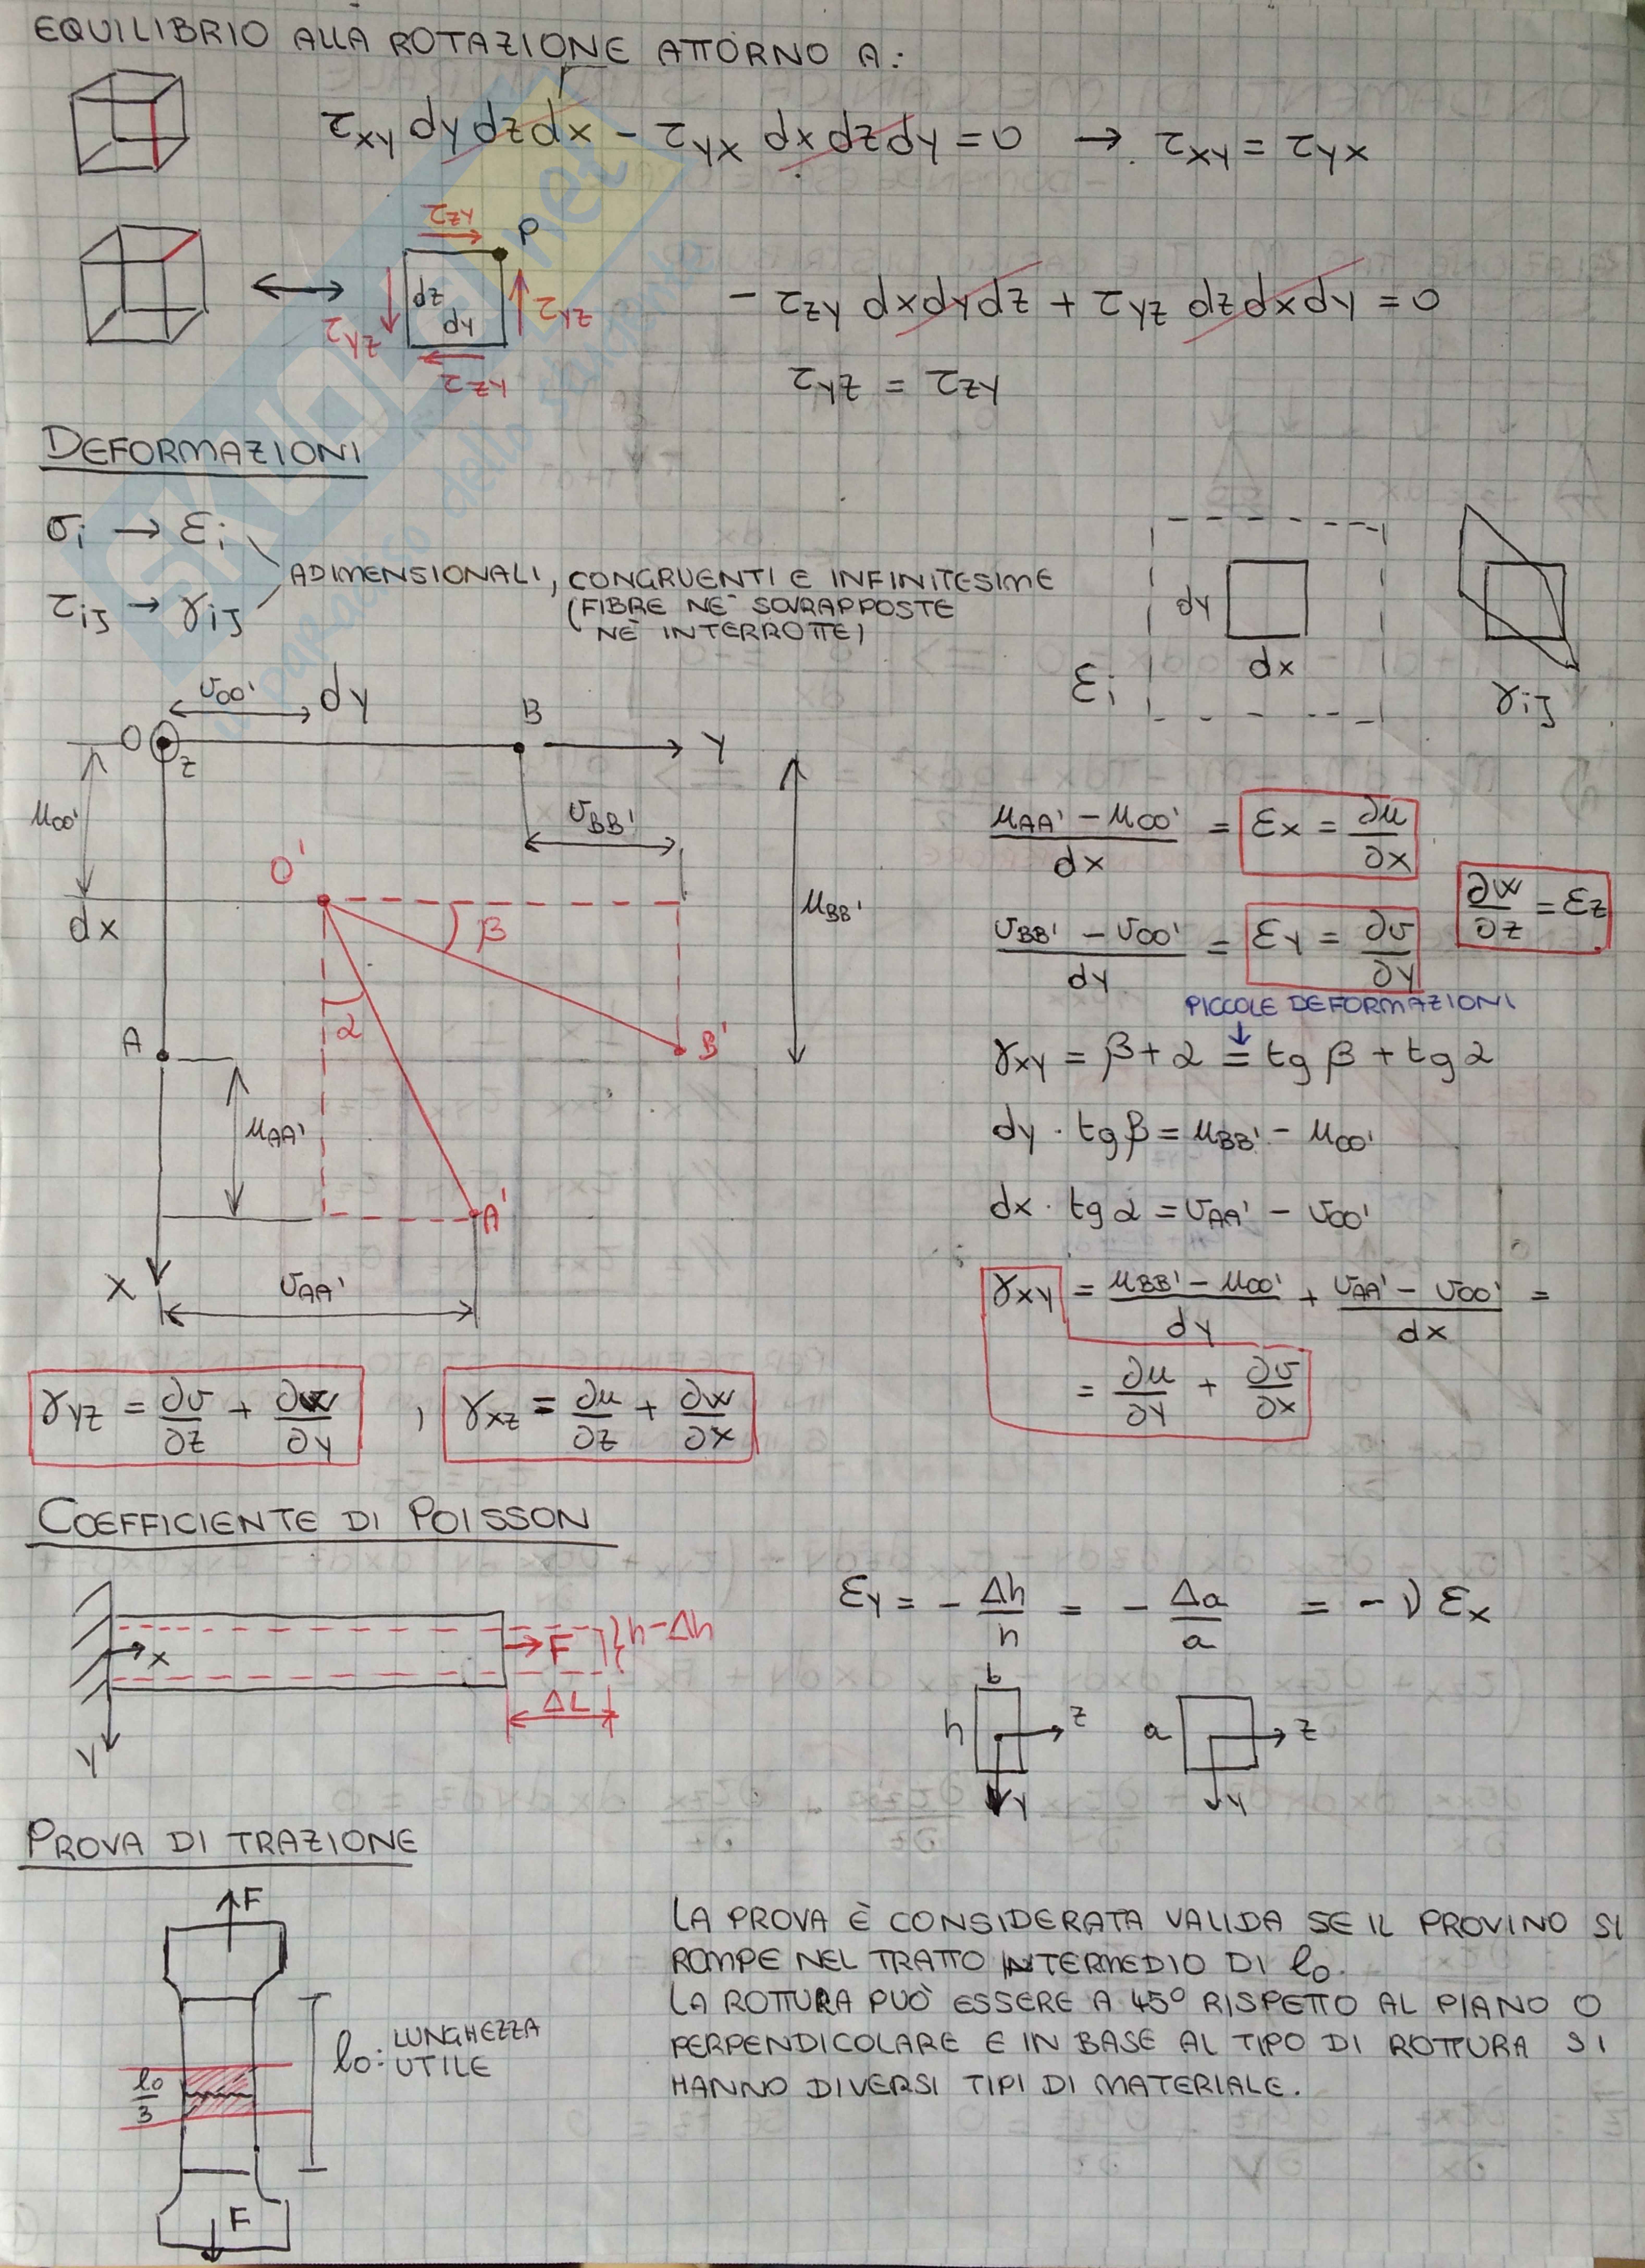 EQUILIBRIO ALLA ROTAZIONE ATTORNO A:
τxy dy dz dx - τyx dx dz dy = 0 → τxy = τyx
τzy
P
dz
dy
τyz
τyz
τzy
- τzy dx dy dz + τyz dz dx dy = 0
τyz = τzy
DEFORMAZIONI
σi → εi
τij → γij
ADIMENSIONALI, CONGRUENTI E INFINITESIME
(FIBRE NÈ SOVRAPPOSTE
NÈ INTERROTTE)
dy
dx
εi
γij
υoo' dy
B
O
z
Y
μoo'
υBB'
O'
dx
β
μBB'
α
A
B'
μAA'
A'
X
υAA'
(μAA' - μoo')/dx = εx = ∂μ/∂x
∂w/∂z = εz
(υBB' - υoo')/dy = εy = ∂υ/∂y
PICCOLE DEFORMAZIONI
γxy = β + α = tg β + tg α
dy · tg β = μBB' - μoo'
dx · tg α = υAA' - υoo'
γxy = (μBB' - μoo')/dy + (υAA' - υoo')/dx =
= ∂μ/∂y + ∂υ/∂x
γyz = ∂υ/∂z + ∂w/∂y , γxz = ∂μ/∂z + ∂w/∂x
COEFFICIENTE DI POISSON
x
F
h-Δh
ΔL
Y
εy = - Δh/h = - Δa/a = - ν εx
b
h
z
y
a
z
y
PROVA DI TRAZIONE
F
l0: LUNGHEZZA
UTILE
l0/3
F
LA PROVA È CONSIDERATA VALIDA SE IL PROVINO SI
ROMPE NEL TRATTO INTERMEDIO DI l0.
LA ROTTURA PUÒ ESSERE A 45° RISPETTO AL PIANO O
PERPENDICOLARE E IN BASE AL TIPO DI ROTTURA SI
HANNO DIVERSI TIPI DI MATERIALE.
SKUOLA.net
il paradiso dello studente